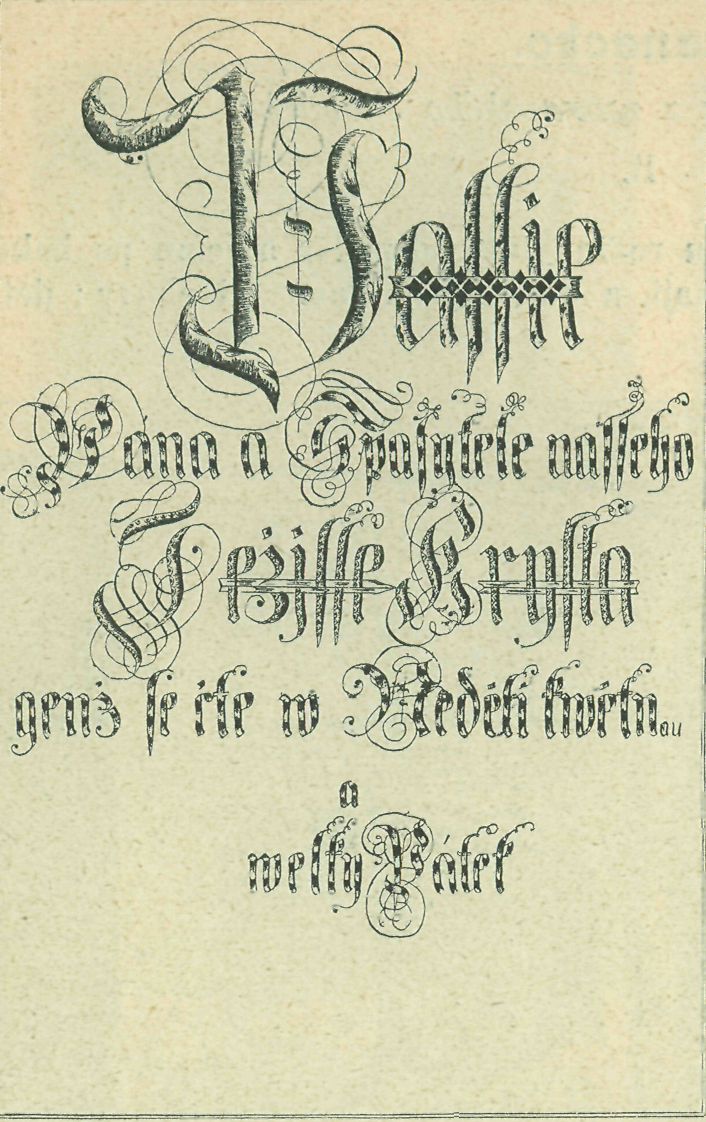 Passie
Pána a Spasytele nasseho
Ježisse Krysta
genž se čte w Neděli kwětnau
a
welky Pátek